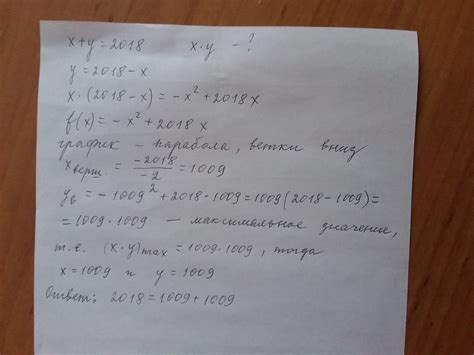 x+y=2018 x·y -?
y=2018-x
x·(2018-x)=-x²+2018x
f(x)=-x²+2018x
график - парабола, ветки вниз
xверш = -2018/-2 = 1009
yв=-1009²+2018·1009=1009(2018-1009)=
=1009·1009 - максимальное значение,
т.е. (x·y)max=1009·1009, тогда
x=1009 и y=1009
Ответ: 2018=1009+1009